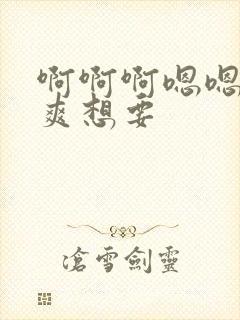 啊啊啊嗯嗯
爽想要
滄雪劍靈